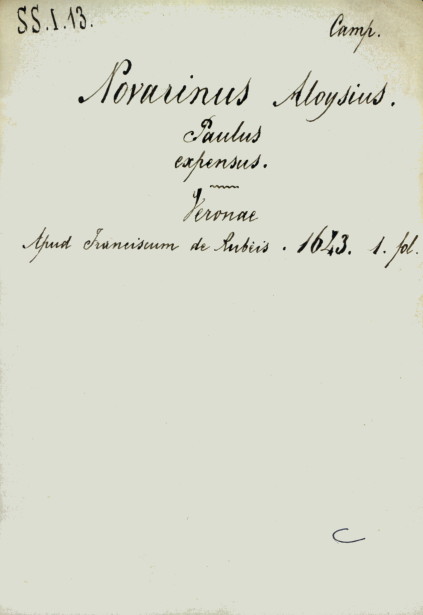 SS.I.13.
Camp.
Novarinus Aloysius.
Paulus
expensus.
Veronae
Apud Franciscum de Rubeis. 1643. 1. fol.
C